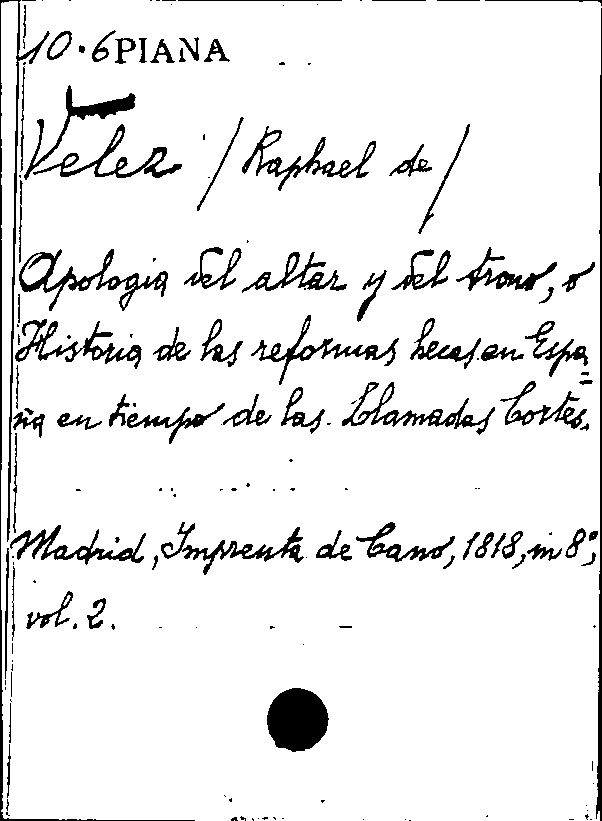 10.6 PIANA
Velez / Raphael de /
Apologia del altar y del trono, o
Historia de las reformas hecas en Espa=
ña en tiempo de las Llamadas Cortes.
Madrid, Imprenta de Cano, 1818, in 8°,
vol. 2.